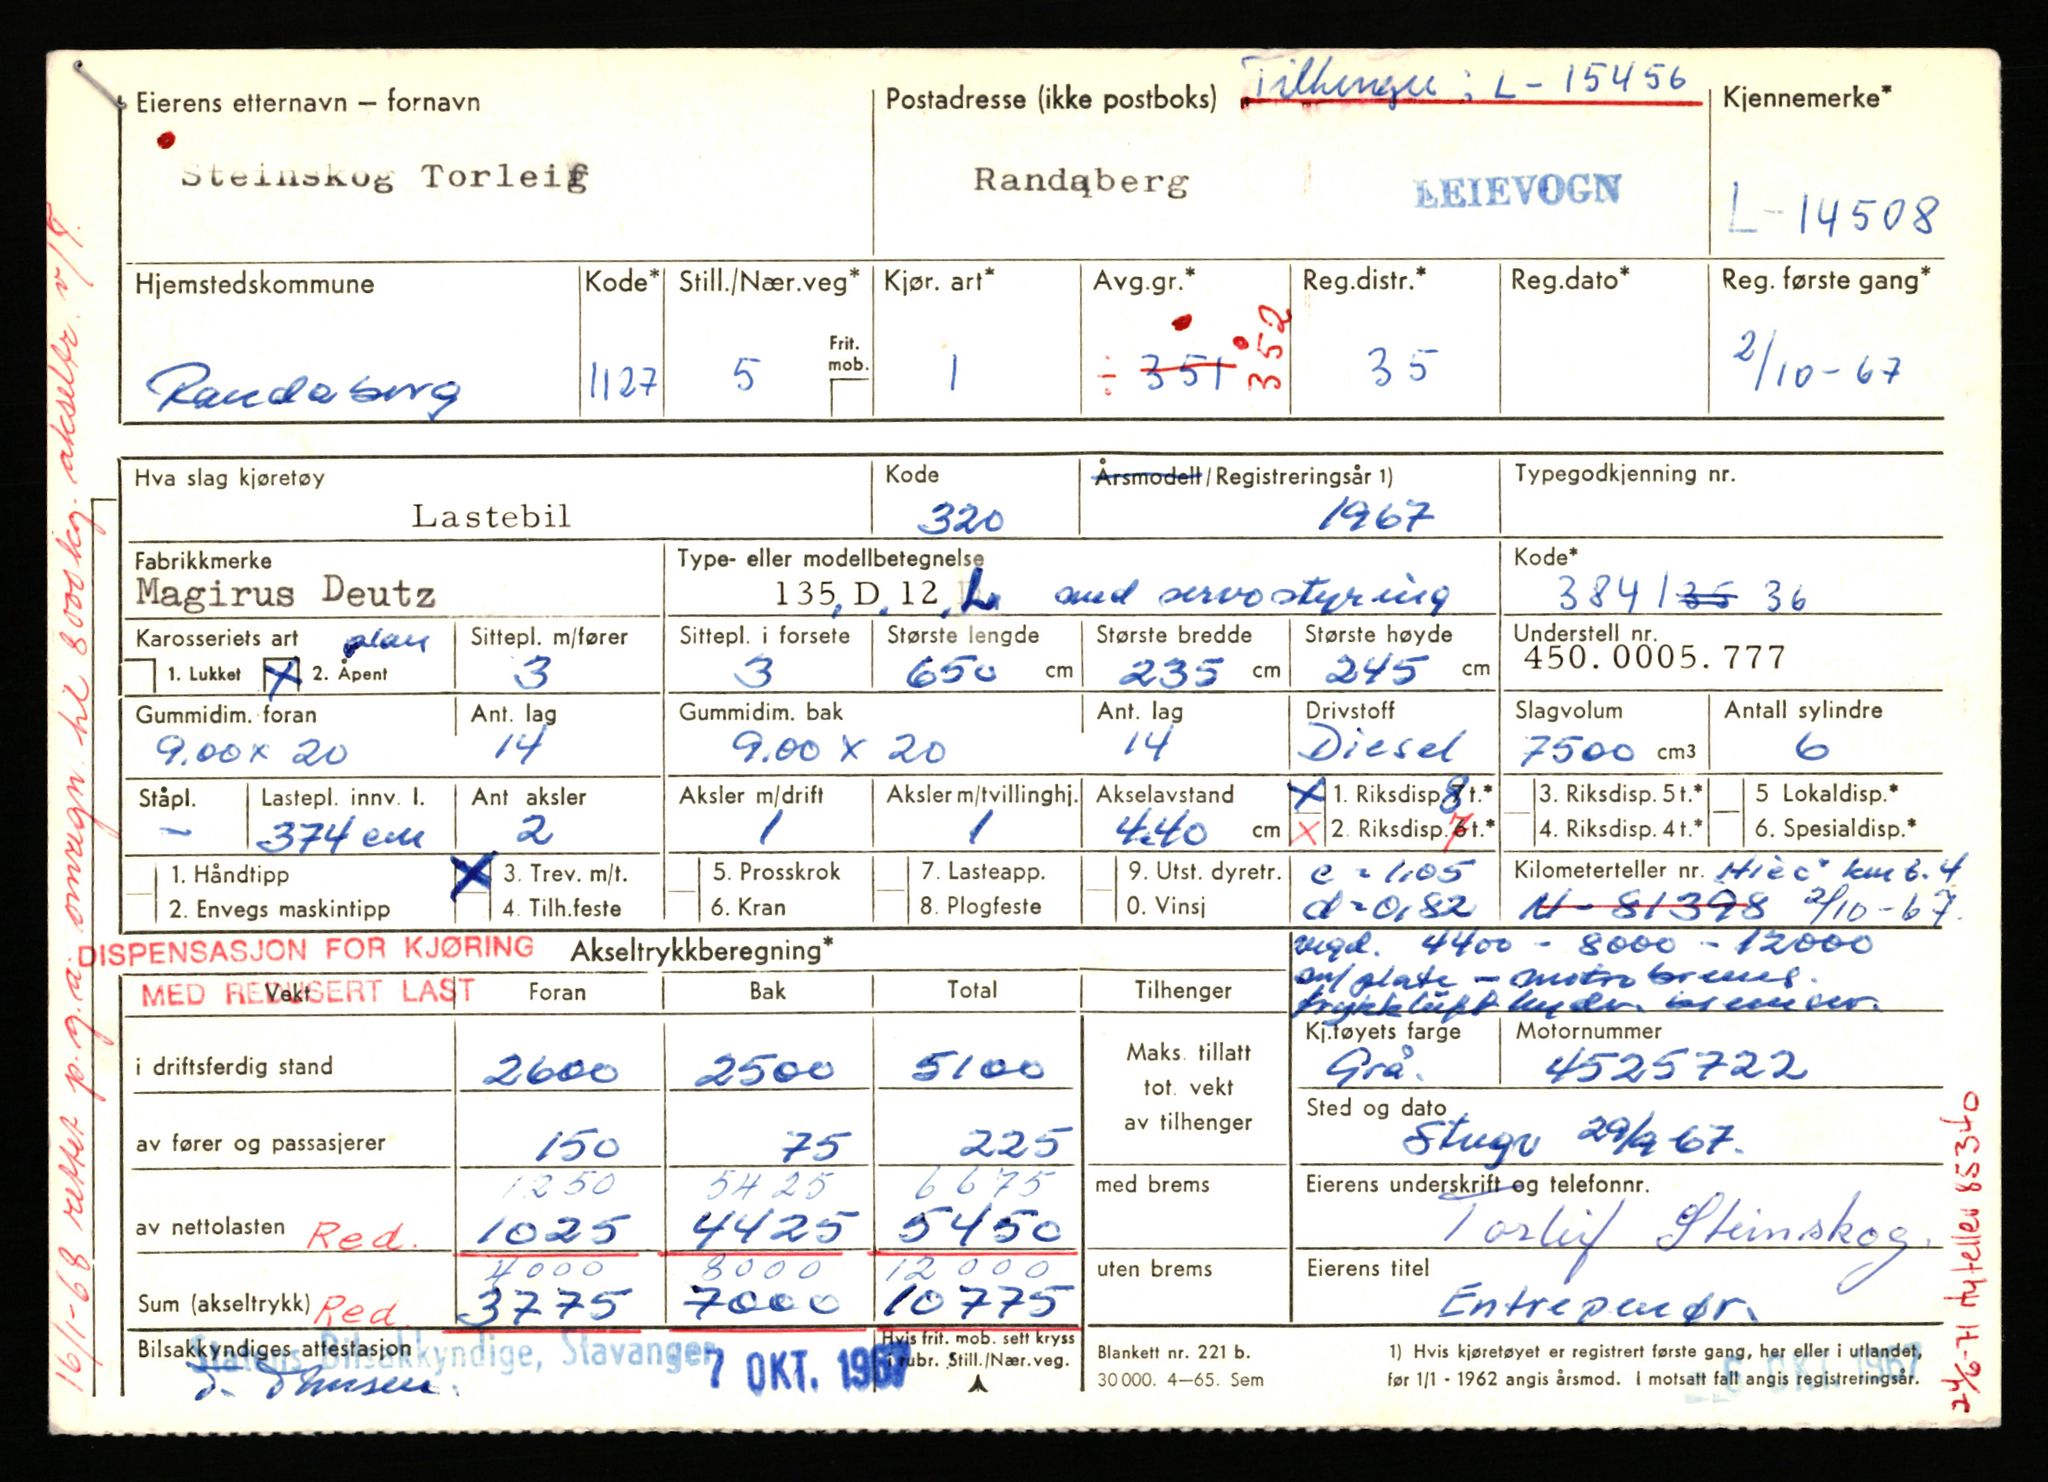 Tilhenger: L-15456
Eierens etternavn – fornavn
Postadresse (ikke postboks)
Kjennemerke*
Steinskog Torleif
Randaberg
LEIEVOGN
L-14508
Hjemstedskommune Kode* Still./Nær.veg* Kjør. art* Avg.gr.* Reg.distr.* Reg.dato* Reg. første gang*
Frit. mob.
Randaberg 1127 5 1 ÷ 351 352 35 2/10-67
Hva slag kjøretøy Kode Årsmodell/Registreringsår 1) Typegodkjenning nr.
Lastebil 320 1967
Fabrikkmerke Type- eller modellbetegnelse Kode*
Magirus Deutz 135.D.12.L. med servostyring 384/35 36
Karosseriets art plan Sittepl. m/fører Sittepl. i forsete Største lengde Største bredde Største høyde Understell nr.
1. Lukket X 2. Åpent 3 3 650 cm 235 cm 245 cm 450.0005.777
Gummidim. foran Ant. lag Gummidim. bak Ant. lag Drivstoff Slagvolum Antall sylindre
9.00 x 20 14 9.00 x 20 14 Diesel 7500 cm3 6
Ståpl. Lastepl. innv. l. Ant aksler Aksler m/drift Aksler m/tvillinghj. Akselavstand X 1. Riksdisp. 7 8 t.* 3. Riksdisp. 5 t.* 5 Lokaldisp.*
– 374 cm 2 1 1 4.40 cm X 2. Riksdisp. 6 7 t.* 4. Riksdisp. 4 t.* 6. Spesialdisp.*
1. Håndtipp X 3. Trev. m/t. 5. Prosskrok 7. Lasteapp. 9. Utst. dyretr. c = 1,05 Kilometerteller nr. km 6.4
2. Envegs maskintipp 4. Tilh.feste 6. Kran 8. Plogfeste 0. Vinsj d = 0,82 N-81398 2/10-67.
DISPENSASJON FOR KJØRING
MED REDUSERT LAST
Akseltrykkberegning*
4400 - 8000 - 12000
m/plate - motorbrems.
trykkluft hydr. bremser.
Vekt Foran Bak Total Tilhenger
Kj.tøyets farge Motornummer
i driftsferdig stand 2600 2500 5100
Maks. tillatt
tot. vekt
av tilhenger
Grå. 4525722
Sted og dato
av fører og passasjerer 150 75 225
Stvgr 29/9 67.
1250 5425 6675
med brems
Eierens underskrift og telefonnr.
av nettolasten Red. 1025 4425 5450
Torleif Steinskog.
4000 8000 12000
uten brems
Eierens titel
Sum (akseltrykk) Red. 3775 7000 10775
Entreprenør.
Bilsakkyndiges attestasjon
Statens Bilsakkyndige, Stavanger
7 OKT. 1967
Hvis frit. mob. sett kryss
i rubr. Still./Nær.veg.
Blankett nr. 221 b.
30 000. 4–65. Sem
1) Hvis kjøretøyet er registrert første gang, her eller i utlandet,
før 1/1 - 1962 angis årsmod. I motsatt fall angis registreringsår.
6 OKT. 1967
16/1-68 rettet p.g.a. omregn. til 8000 kg. akseltr. v/T.
24/6-71 Nyteller 85340